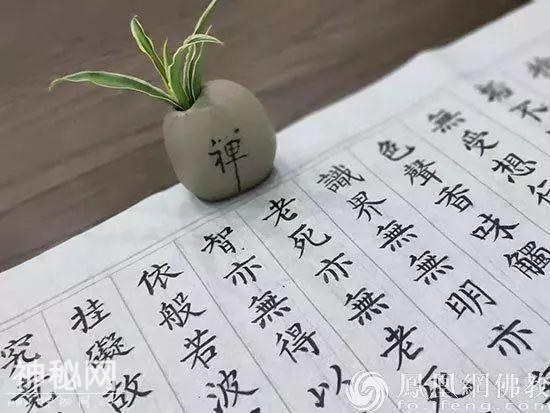 不
無受想行
色聲香味觸
識界無無明亦
老死亦無老
智亦無得以
依般若波
挂礙故
究竟
禪
神秘网
鳳凰網佛教
fo.ifeng.com